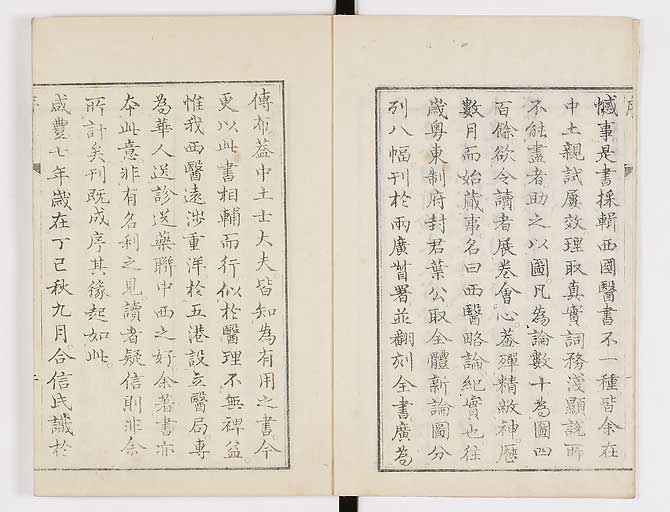 序
憾事是書採輯西國醫書不一種皆余在
中土親試屢效理取真實詞務淺顯說所
不能盡者助之以圖凡為論數十為圖四
百餘欲令讀者展卷會心蓋殫精敝神歷
數月而始蕆事名曰西醫略論紀實也往
歲粵東制府封君葉公取全體新論圖分
列八幅刊於兩廣督署並翻刻全書廣為
傳布蓋中土士大夫皆知為有用之書今
更以此書相輔而行似於醫理不無裨益
惟我西醫遠涉重洋於五港設立醫局專
為華人送診送藥聯中西之好余著書亦
本此意非有名利之見讀者疑信則非余
所計矣刊既成序其緣起如此
咸豐七年歲在丁巳秋九月合信氏識於